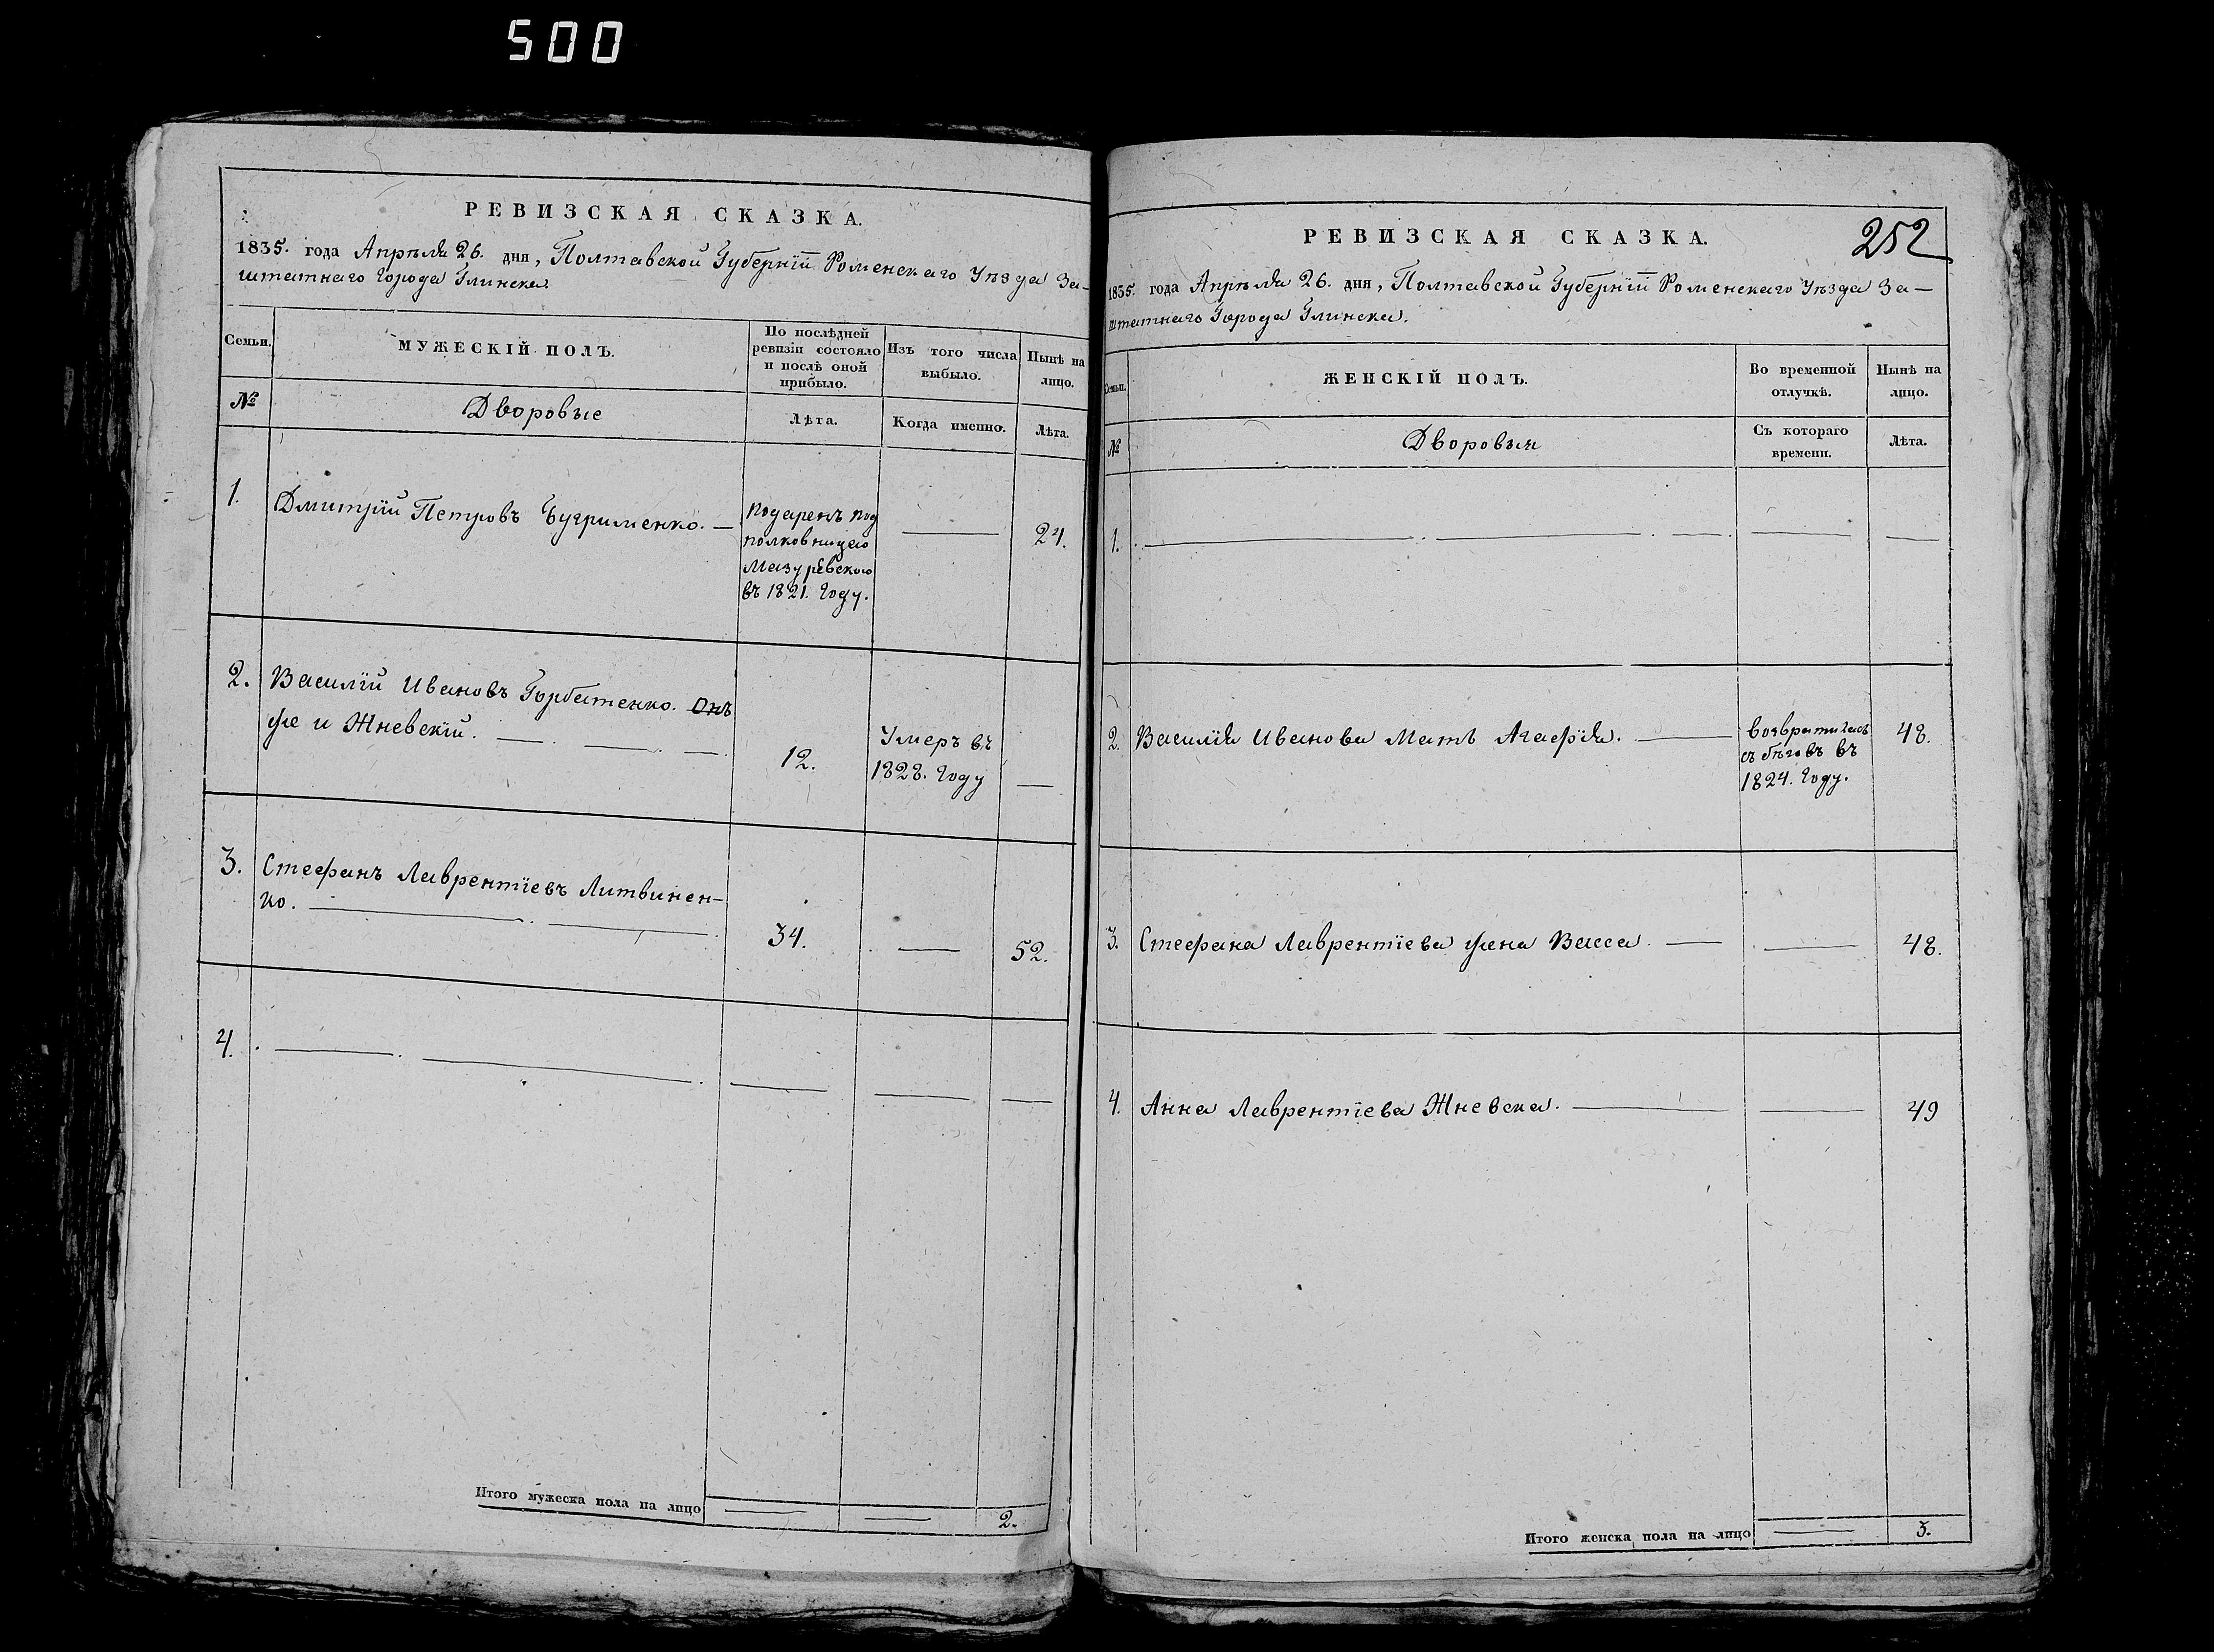 500
РЕВИЗСКАЯ СКАЗКА.
1835. года Апрѣля 26. дня, Полтавской Губернїи Роменскаго Уѣзда За-
штатнаго Города Глинска.
Семьи.
МУЖЕСКІЙ ПОЛЪ.
По послѣдней
ревизіи состояло
и послѣ оной
прибыло.
Изъ того числа
выбыло.
Нынѣ на
лицо.
№
Дворовые
Лѣта.
Когда именно.
Лѣта.
1.
Дмитрїй Петровъ Бугрименко.
подаренъ под
полковницею
Мазуревскою
въ 1821. Году.
24.
2.
Василїй Ивановъ Горбатенко. Онъ
же и Жневскїй.
12.
Умеръ въ
1828. Году
3.
Стефанъ Лаврентїевъ Литвинен-
ко.
34.
52.
4.
Итого мужеска пола на лицо
2.
252
РЕВИЗСКАЯ СКАЗКА.
1835. года Апрѣля 26. дня, Полтавской Губернїи Роменскаго Уѣзда За-
штатнаго Города Глинска.
Семьи.
ЖЕНСКІЙ ПОЛЪ.
Во временной
отлучкѣ.
Нынѣ на
лицо.
№
Дворовыя
Съ котораго
времени.
Лѣта.
1.
2.
Василїя Иванова Мать Агафїя.
возвратилась
съ бѣговъ въ
1824. Году.
48.
3.
Стефана Лаврентїева жена Васса.
48.
4.
Анна Лаврентїева Жневска.
49
Итого женска пола на лицо
3.